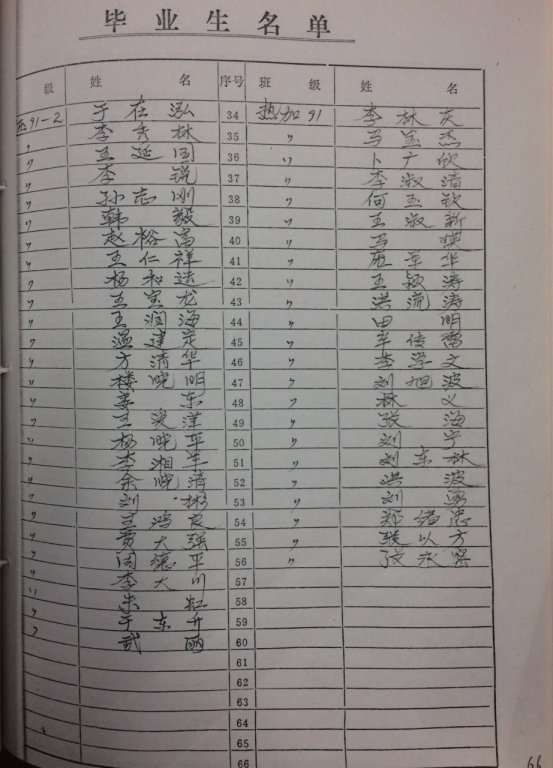 毕业生名单
级 姓 名 序号 班 级 姓 名
91-2 于在泓 34 热加91 李林庆
〃 李秀林 35 〃 马孟杰
〃 王延国 36 〃 卜广欣
〃 李锐 37 〃 李淑清
〃 孙志刚 38 〃 何玉钦
〃 韩毅 39 〃 王淑新
〃 赵裕富 40 〃 马瑛
〃 王仁祥 41 〃 军华
〃 杨和进 42 〃 王颖涛
〃 王宝龙 43 〃 洪流涛
〃 王润海 44 〃 田明
〃 温建定 45 〃 辛传雷
〃 方清华 46 〃 李学文
〃 楼晓明 47 〃 刘旭波
〃 姜东 48 〃 林义
〃 王爱萍 49 〃 张海
〃 杨晓平 50 〃 刘宁
〃 李湘军 51 〃 刘东林
〃 余晓清 52 〃 洪波
〃 刘彬 53 〃 刘勇
〃 王鸿良 54 〃 郑绪忠
〃 贾大强 55 〃 张以方
〃 周德平 56 〃 永
〃 李大川 57
〃 朱红 58
〃 于东升 59
武丽 60
61
62
63
64
65
66
66